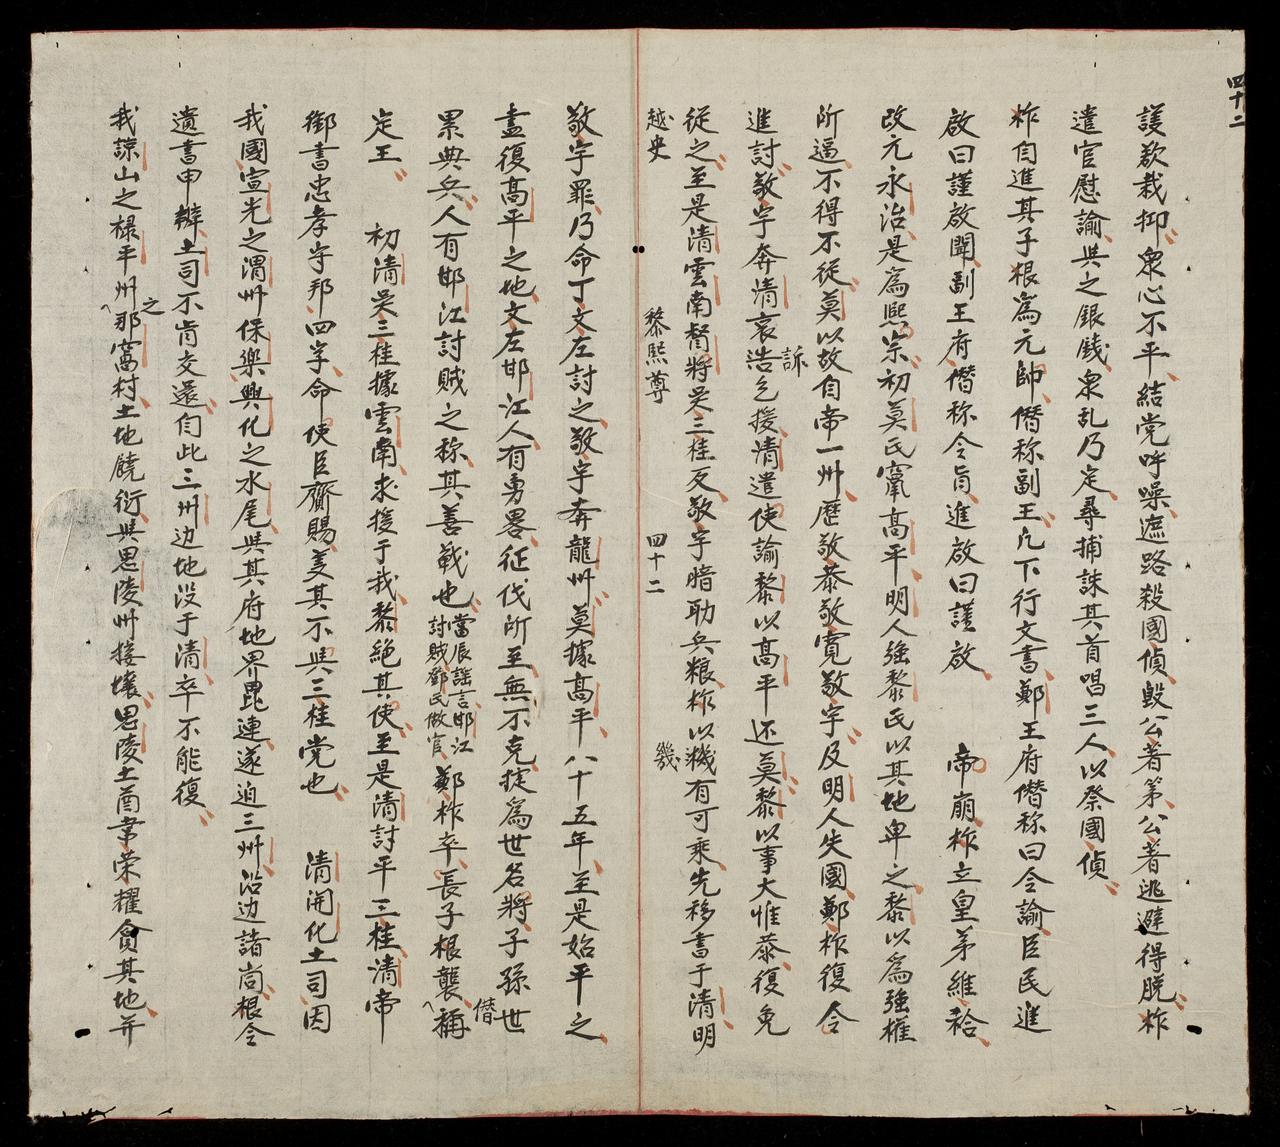 四十二
護欲裁抑衆心不平結党呼噪遮路殺國偵毀公著第公著逃避得脱柞
遣官慰諭與之銀錢衆乱乃定尋捕誅其首唱三人以祭國偵
柞自進其子根為元帥僭称副王凡下行文書鄭王府僭称曰令諭臣民進
啟曰謹啟聞副王府僭称令旨進啟曰謹啟 帝崩柞立皇弟維祫
改元永治是為熙宗初莫氏竄高平明人強黎氏以其地卑之黎以為強權
所逼不得不從莫以故自帝一州歷敬恭敬寬敬宇及明人失國鄭柞復令
進討敬宇奔清哀浩訴乞援清遣使諭黎以高平还莫黎以事大惟恭復免
從之至是清雲南督將吳三桂反敬宇暗助兵粮柞以機幾有可乘先移書于清明
越史 黎熙尊 四十二
敬宇罪乃命丁文左討之敬宇奔龍州莫據高平八十五年至是始平之
盡復高平之地文左邯江人有勇畧征伐所至無不克捷為世名將子孫世
累典兵人有邯江討賊之称其善戰也當辰謡言邯江討賊鄧氏做官鄭柞卒長子根襲僭稱
定王 初清吳三桂據雲南求援于我黎絶其使至是清討平三桂清帝
御書忠孝守邦四字命使臣齎賜美其不與三桂党也 清開化土司因
我國宣光之渭州保樂興化之水尾與其府地界毘連遂迫三州沿边諸峝根令
遺書申辨土司不肯交還自此三州边地没于清卒不能復
我諒山之禄平州之那窩村土地饒衍與思陵州接壤思陵土酋韋荣耀貪其地并